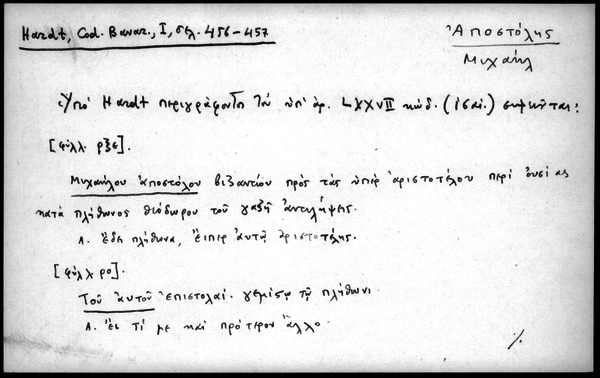 Hardt, Cod. Bavar., I, σελ. 456-457
Ἀποστόλης
Μιχαήλ
Ὑπὸ Hardt περιγράφοντος τὸν ὑπ' ἀρ. LXXVII κώδ. (ἰσαι.) σημειοῦται:
[φύλλ. ρξε].
Μιχαήλου ἀποστόλου βιζαντίου πρὸς τὰς ὑπὲρ ἀριστοτέλου περὶ οὐσίας
κατὰ πλήθωνος θεόδωρου τοῦ γαζῆ ἀντιλήψεις.
Α. Ἔδει πλήθωνα, εἴπερ αὐτῷ ἀριστοτέλης.
[φύλλ. ρο].
Τοῦ αὐτοῦ ἐπιστολαί. γεμίστῳ τῷ πλήθωνι
Α. Εἰ τί με καὶ πρότερον ἄλλο